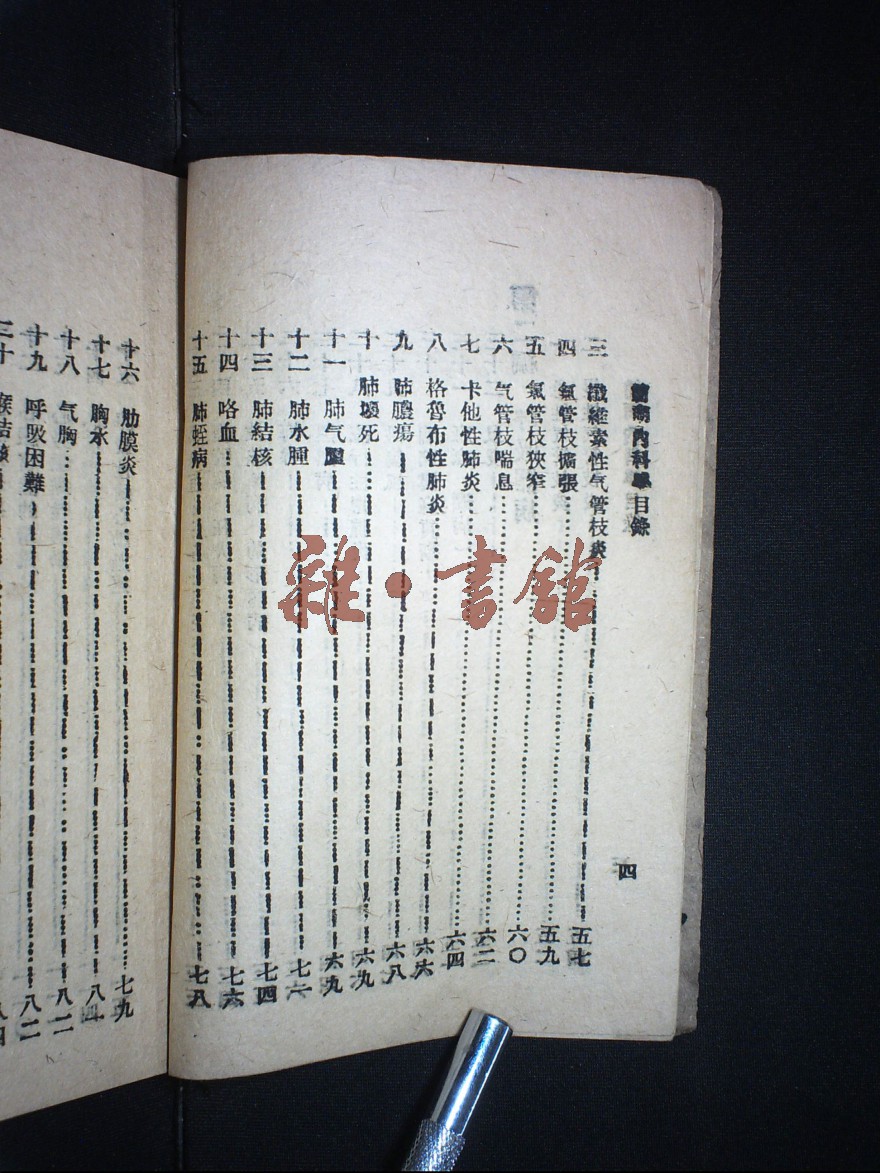 簡明內科學目錄
四
三 纖維素性气管枝炎 五七
四 氣管枝擴張 五九
五 氣管枝狹窄 六〇
六 气管枝喘息 六二
七 卡他性肺炎 六四
八 格魯布性肺炎 六六
九 肺膿瘍 六八
十 肺壞死 六九
十一 肺气腫 六九
十二 肺水腫
十三 肺結核 七四
十四 咯血 七六
十五 肺蛭病 七八
十六 肋膜炎 七九
十七 胸水 八一
十八 气胸 八二
十九 呼吸困難 八二
二十 喉結核
雜·書館